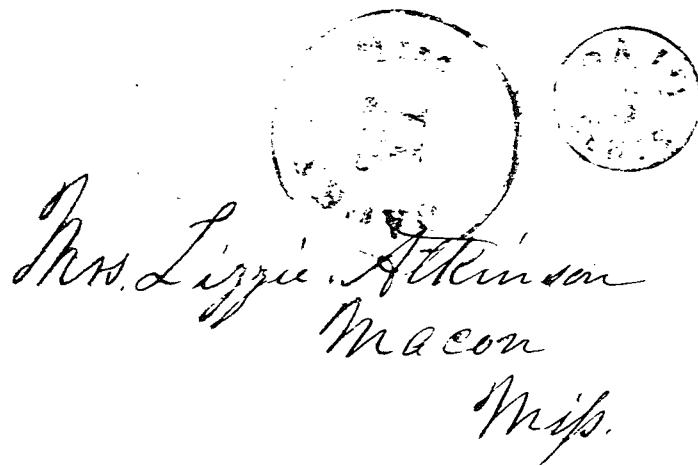 Mrs. Lizzie Atkinson
Macon
Miſs.